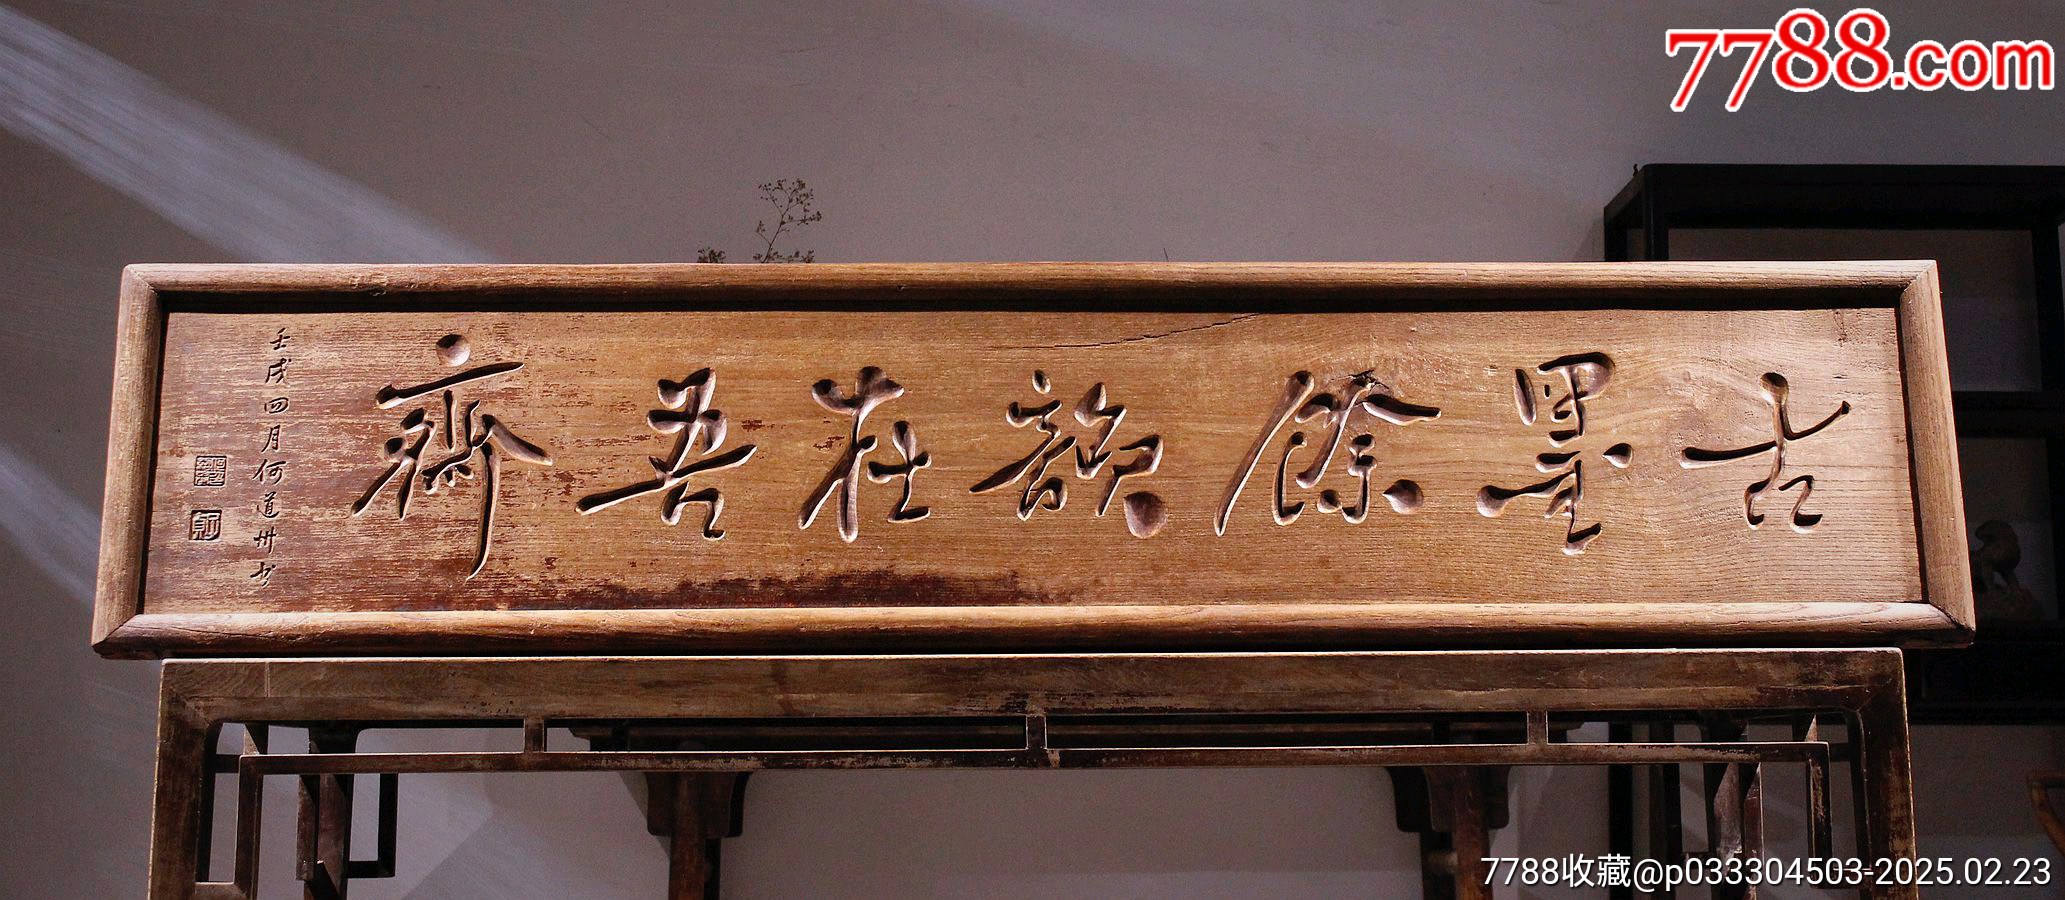 7788.com
古墨餘韻在吾齊
壬戌四月何道州书
7788收藏@p033304503-2025.02.23